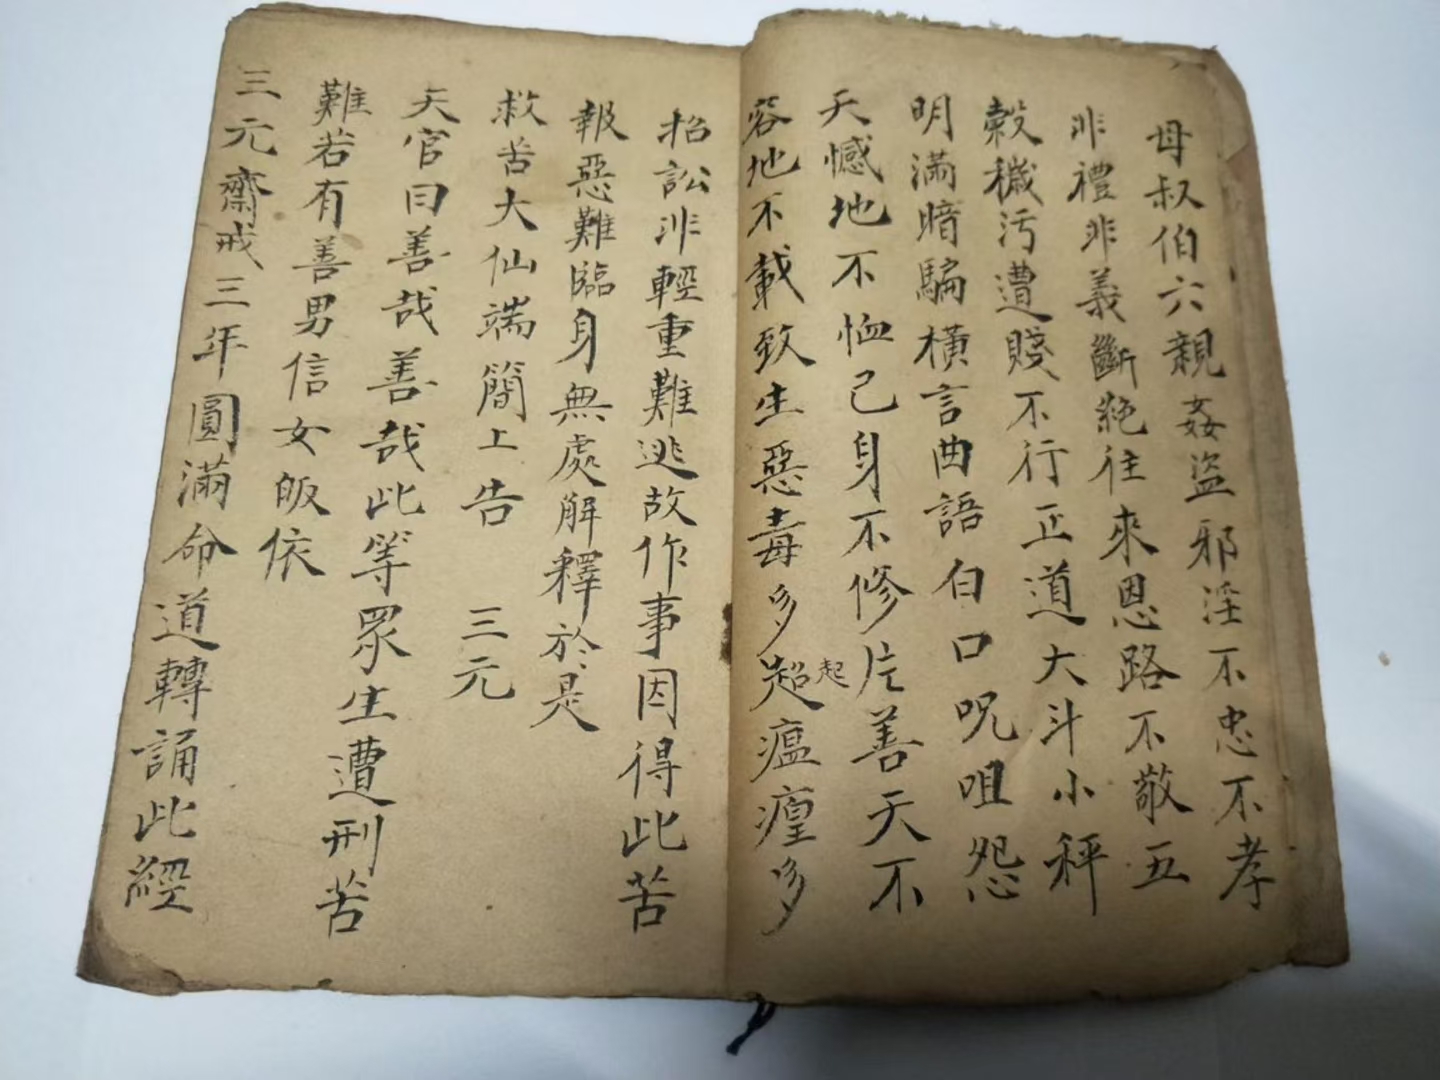 母叔伯六親姦盗邪淫不忠不孝
非禮非義斷絶往來恩路不敬五
穀穢污遭賤不行正道大斗小秤
明瞞暗騙橫言曲語白口呪咀怨
天憾地不恤己身不修片善天不
容地不載致生惡毒多起瘟㾮多
起
招訟非輕重難逃故作事因得此苦
報惡難臨身無處解釋於是
救苦大仙端簡上告 三元
天官曰善哉善哉此等眾生遭刑苦
難若有善男信女皈依
三元齋戒三年圓滿命道轉誦此經